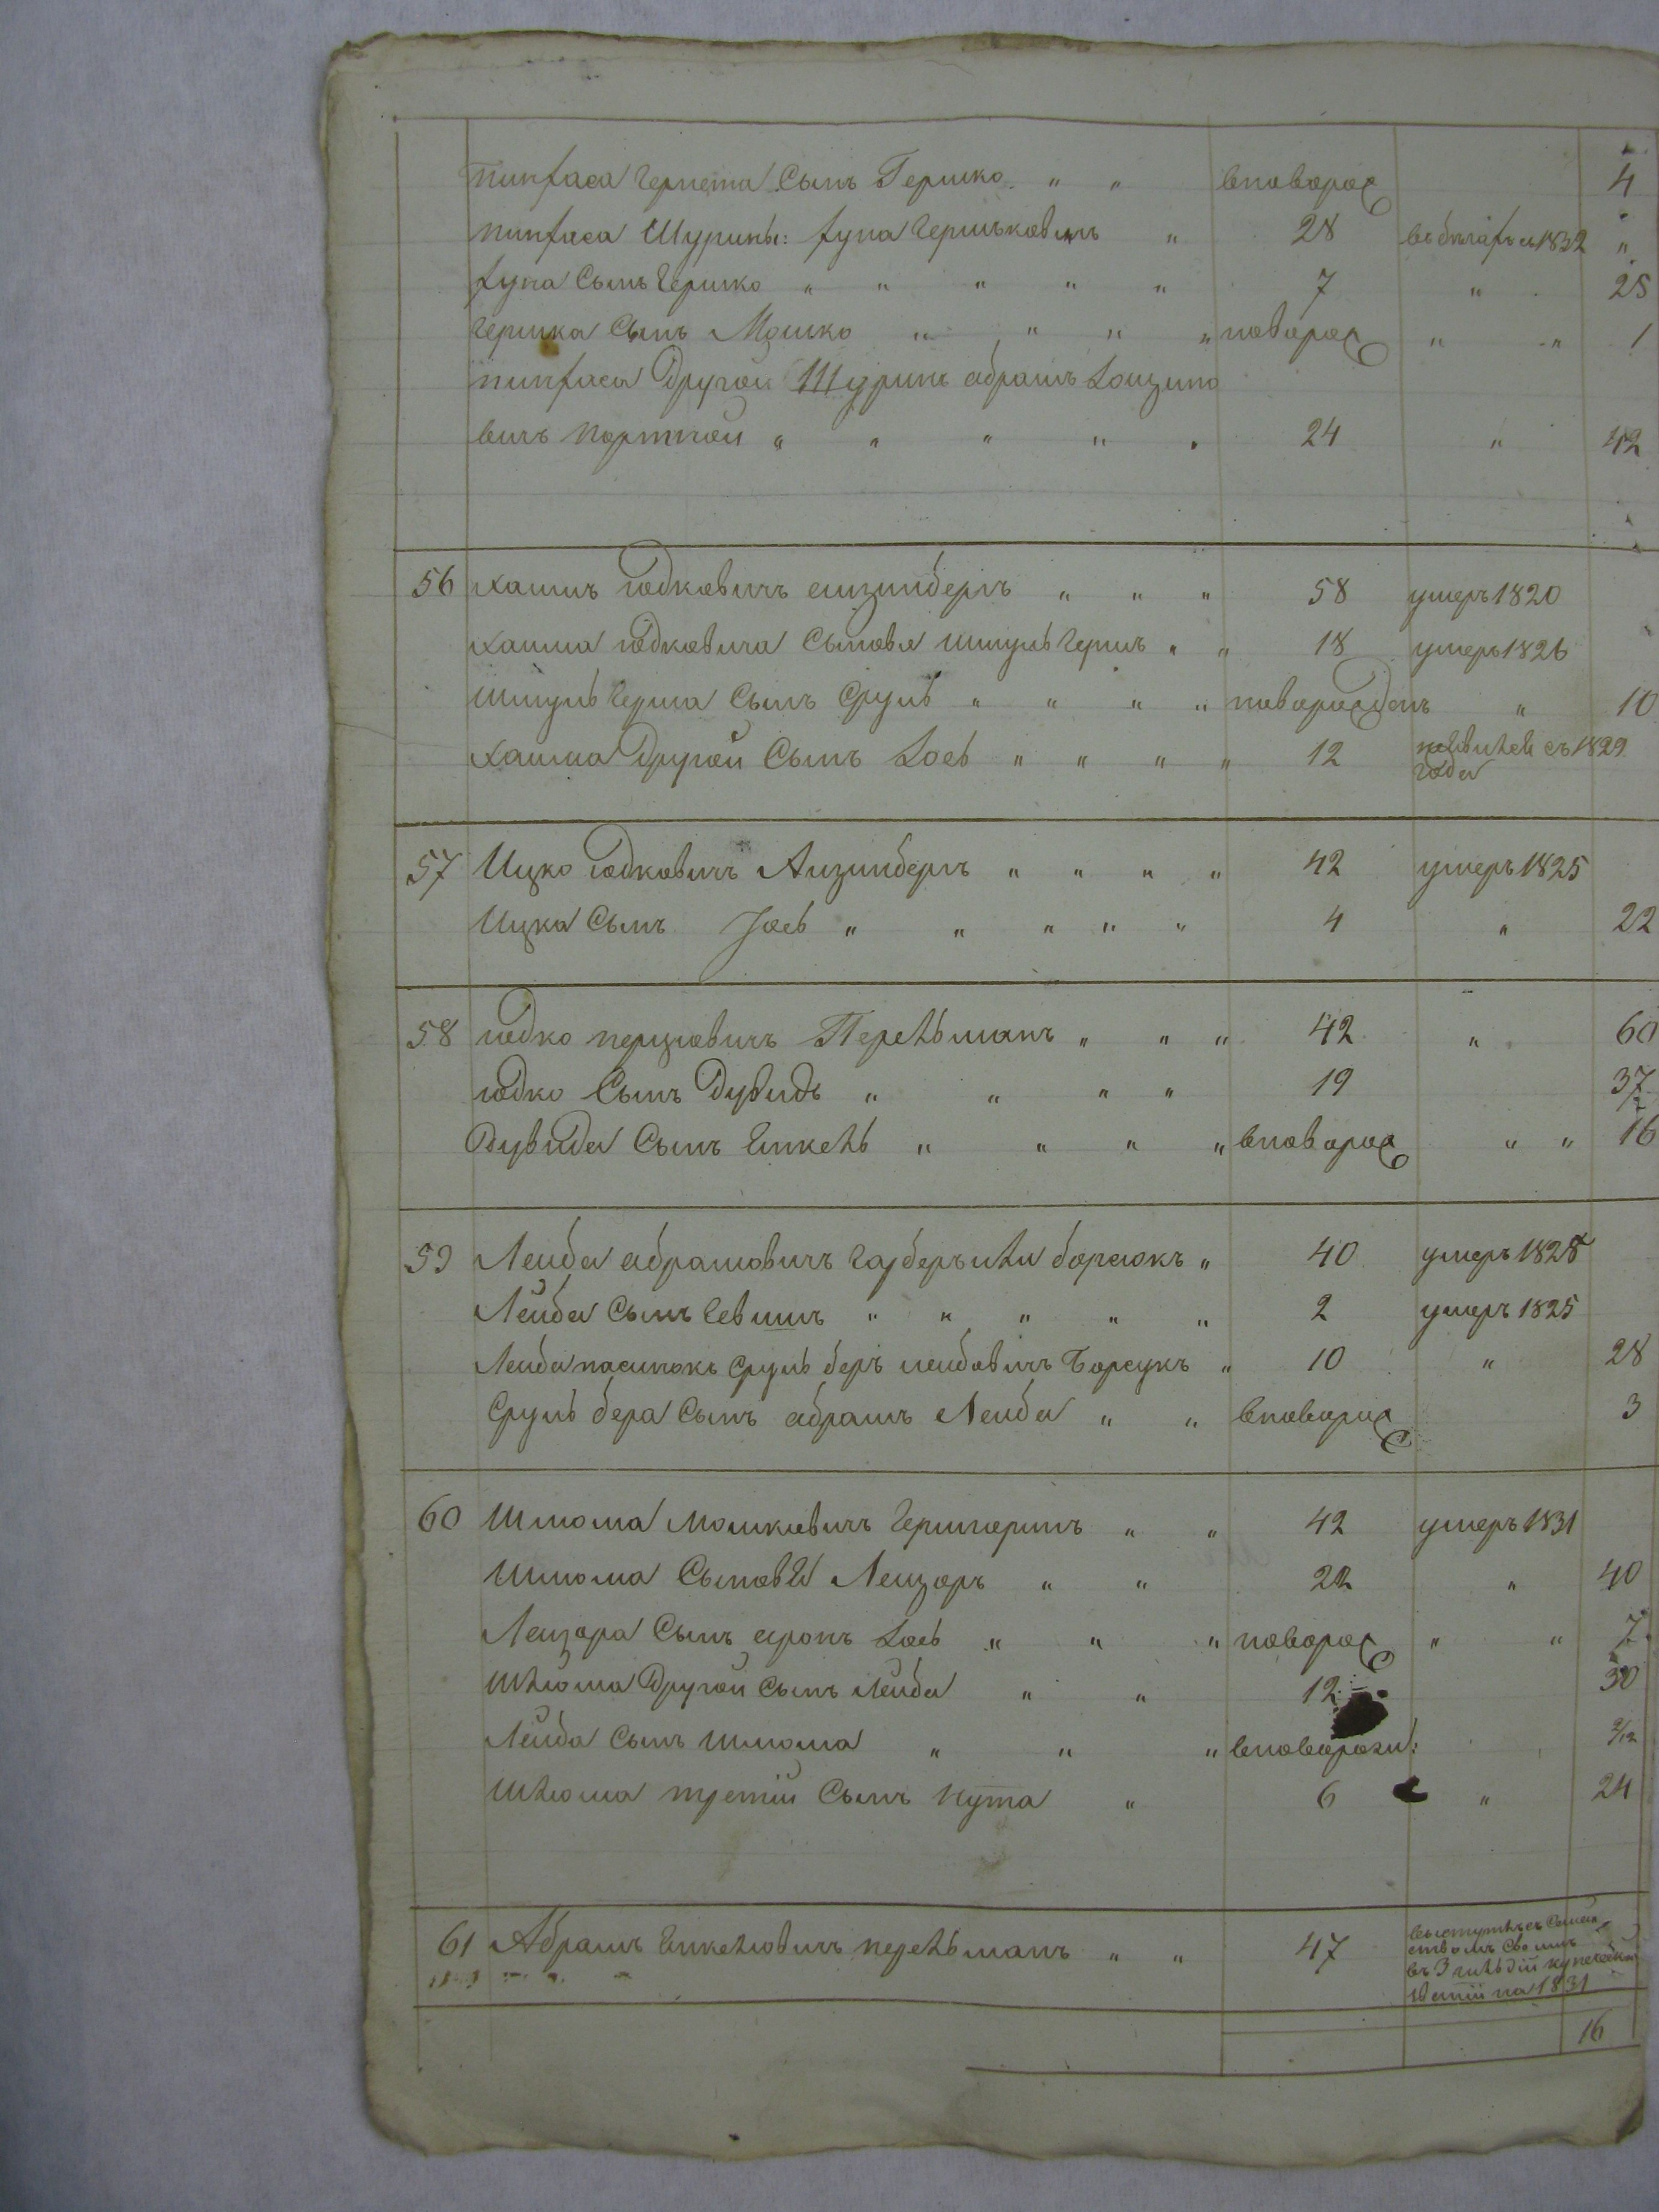 пинхаса Герпета Сынъ Гершко " " вноворож 4
пинхаса Шурины: хуна Гершковичъ " 28 въ бегахъ съ 1832 "
хуна Сынъ Гершко " " " " " 7 " 25
Гершка Сынъ Мошко " " " " новорож " " 1
пинхаса Другой Шуринъ абрамъ
вичъ портной " " " " " 24 " 42
56 хаимъ юдковичъ " " " 58 умеръ 1820
хаима юдковича Сыновья шмуль Гершъ " " 18 умеръ 1826
шмуль Герша Сынъ Сруль " " " " новорожденъ " 10
хаима Другой Сынъ Іось " " " " 12 съ 1829
года
57 Ицко юдковичъ Аизинбергъ " " " " 42 умеръ 1825
Ицка Сынъ Іось " " " " " 4 " 22
58 юдко перцовичъ Перельманъ " " " 42 " 60
юдко Сынъ Дувидъ " " " " 19 37
Дувида Сынъ Янкель " " " " вноворож " " 16
59 Леиба абрамовичъ гарберъ или борсюкъ " 40 умеръ 1828
Лейба Сынъ " " " " " 2 умеръ 1825
Леиба пасинокъ Сруль беръ леибовичъ Борсукъ " 10 " 28
Сруль бера Сынъ абрамъ Леиба " " вноворож 3
60 Шлюма Мошковичъ " " 42 умеръ 1831
Шлюма Сыновья Леизоръ " " 22 " 40
Леизора Сынъ аронъ Іось " " " новорож " " 7
Шлюма Другой Сынъ Лейба " " 12 30
Лейба Сынъ Шлюма " " " вноворожд: 2/12
Шлюма третiй Сынъ нута " 6 " 24
61 Абрамъ Янкелювичъ перельманъ " " 47 выступилъ съ Семей
ствомъ Своимъ
въ 3 гильдiи
на 1831
16